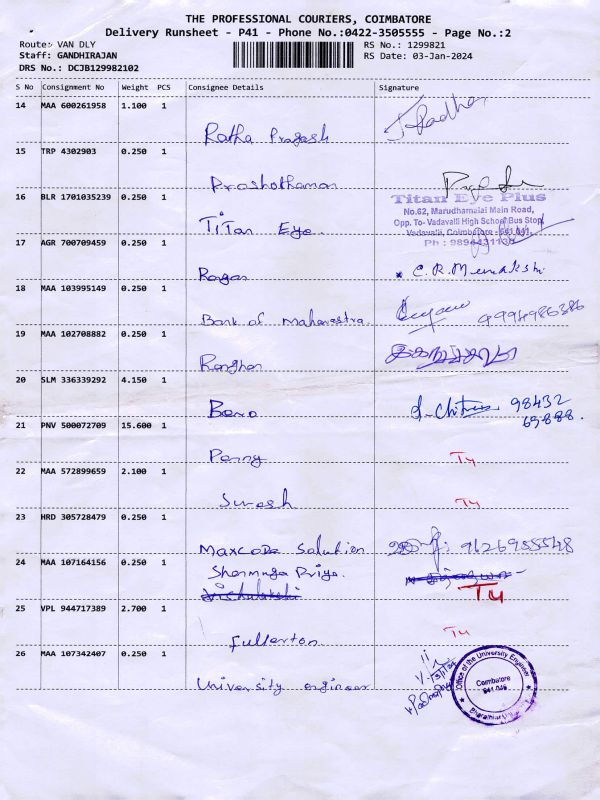 THE PROFESSIONAL COURIERS, COIMBATORE
Delivery Runsheet - P41 - Phone No.:0422-3505555 - Page No.:2
Route: VAN DLY
RS No.: 1299821
Staff: GANDHIRAJAN
RS Date: 03-Jan-2024
DRS No.: DCJB129982102
S No Consignment No Weight PCS Consignee Details Signature
14 MAA 600261958 1.100 1
Ratha Pragash
15 TRP 4302903 0.250 1
Proshothaman
16 BLR 1701035239 0.250 1
Titan Eye Plus
No.62, Marudhamalai Main Road,
Opp. To- Vadavalli High School Bus Stop,
Vadavalli, Coimbatore - 641 041.
Titan Eye
17 AGR 700709459 0.250 1
* C.R. Meenakshi
18 MAA 103995149 0.250 1
Bank of Maharastra. 9994986386
19 MAA 102708882 0.250 1
20 SLM 336339292 4.150 1
98432
21 PNV 500072709 15.600 1
Penny
22 MAA 572899659 2.100 1
Suresh
23 HRD 305728479 0.250 1
Maxcode Salution 9626988548
24 MAA 107164156 0.250 1
Sharmuga Priya.
25 VPL 944717389 2.700 1
Fullerton
26 MAA 107342407 0.250 1
University engineer
Office of the University Engineer
Coimbatore
641 046